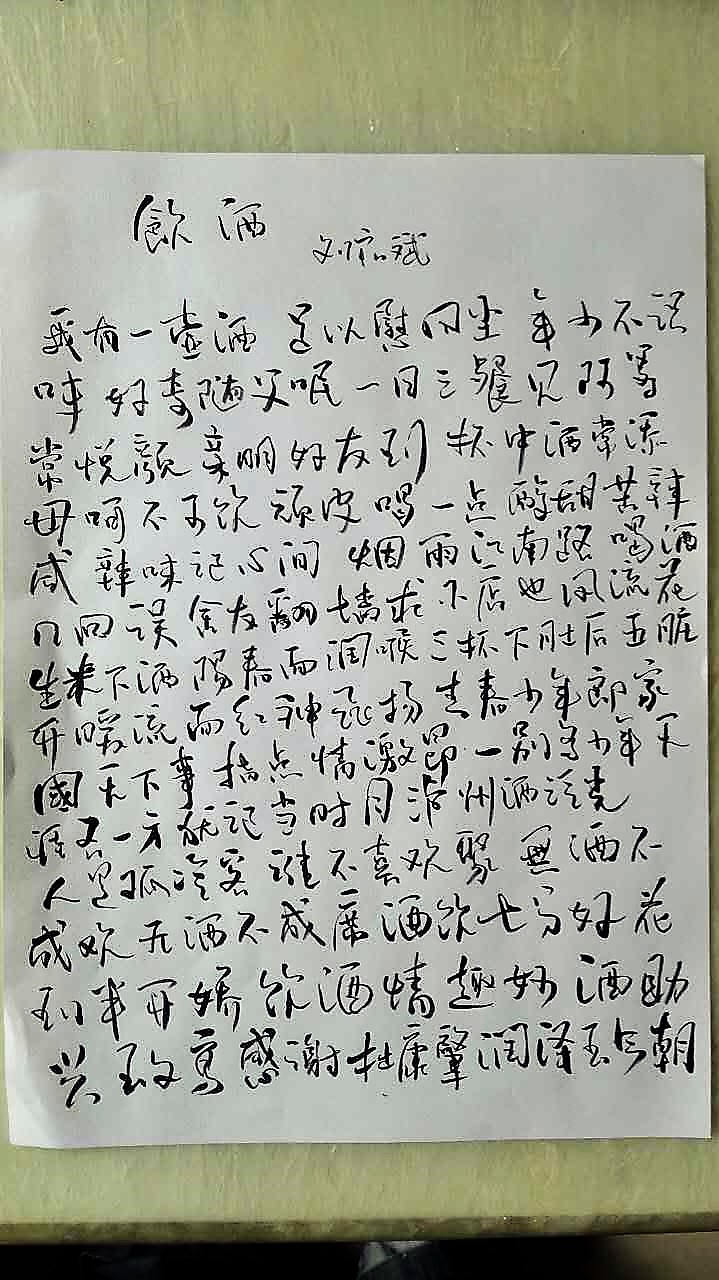 飲酒
刘宿斌
我有一壶酒 足以慰风尘 年少不识
味 好奇随父呡 一日三餐见 阿爹
常悦颜 亲朋好友到 杯中酒常添
毋嗵不可饮 顽皮喝一点 酸甜苦辣
咸 辣味记心间 烟雨江南路 喝酒
几回误 舍友翻墙求 小店也风流 花
生米下酒 阳春面润喉 三杯下肚后 五脏
开暖流 面红神飞扬 青春少年郎 家
國天下事 指点情激昂 一别少年
涯各一方 犹记当时月 泸州酒
人是孤冷客 谁不喜欢聚 無酒不
成欢 无酒不成席 酒饮七分好 花
到半开娇 饮酒情趣妙 酒助
兴致高 感谢杜康肇 润泽至今朝